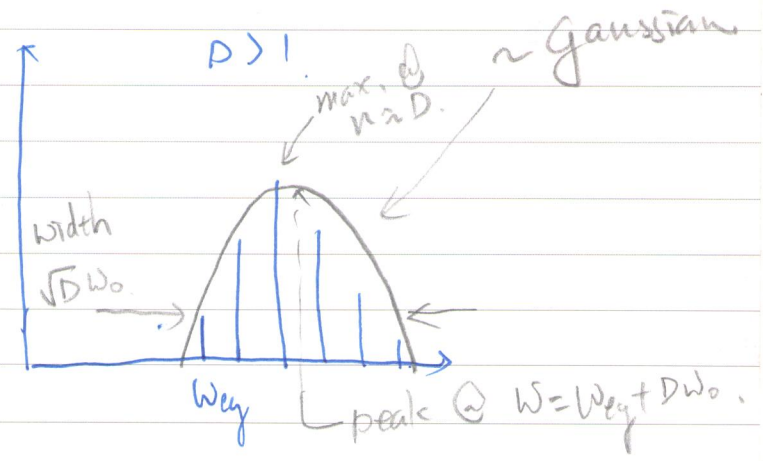 D > 1.
~ Gaussian
max. @
n ≈ D.
width
√D ω₀
ω_eg
peak @ ω = ω_eg + Dω₀.